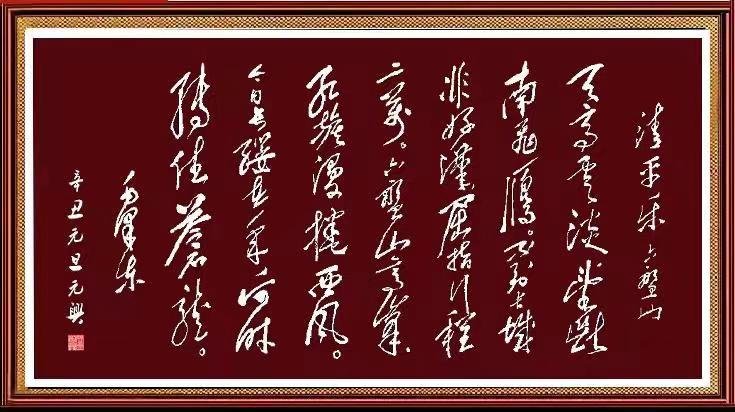 清平乐六盘山
天高云淡望断
南飛鴈。不到长城
非好漢屈指行程
二萬。六盤山高峯
红旗漫捲西风。
今日长缨在手何时
缚住蒼龙。
毛泽东
辛丑元旦元興